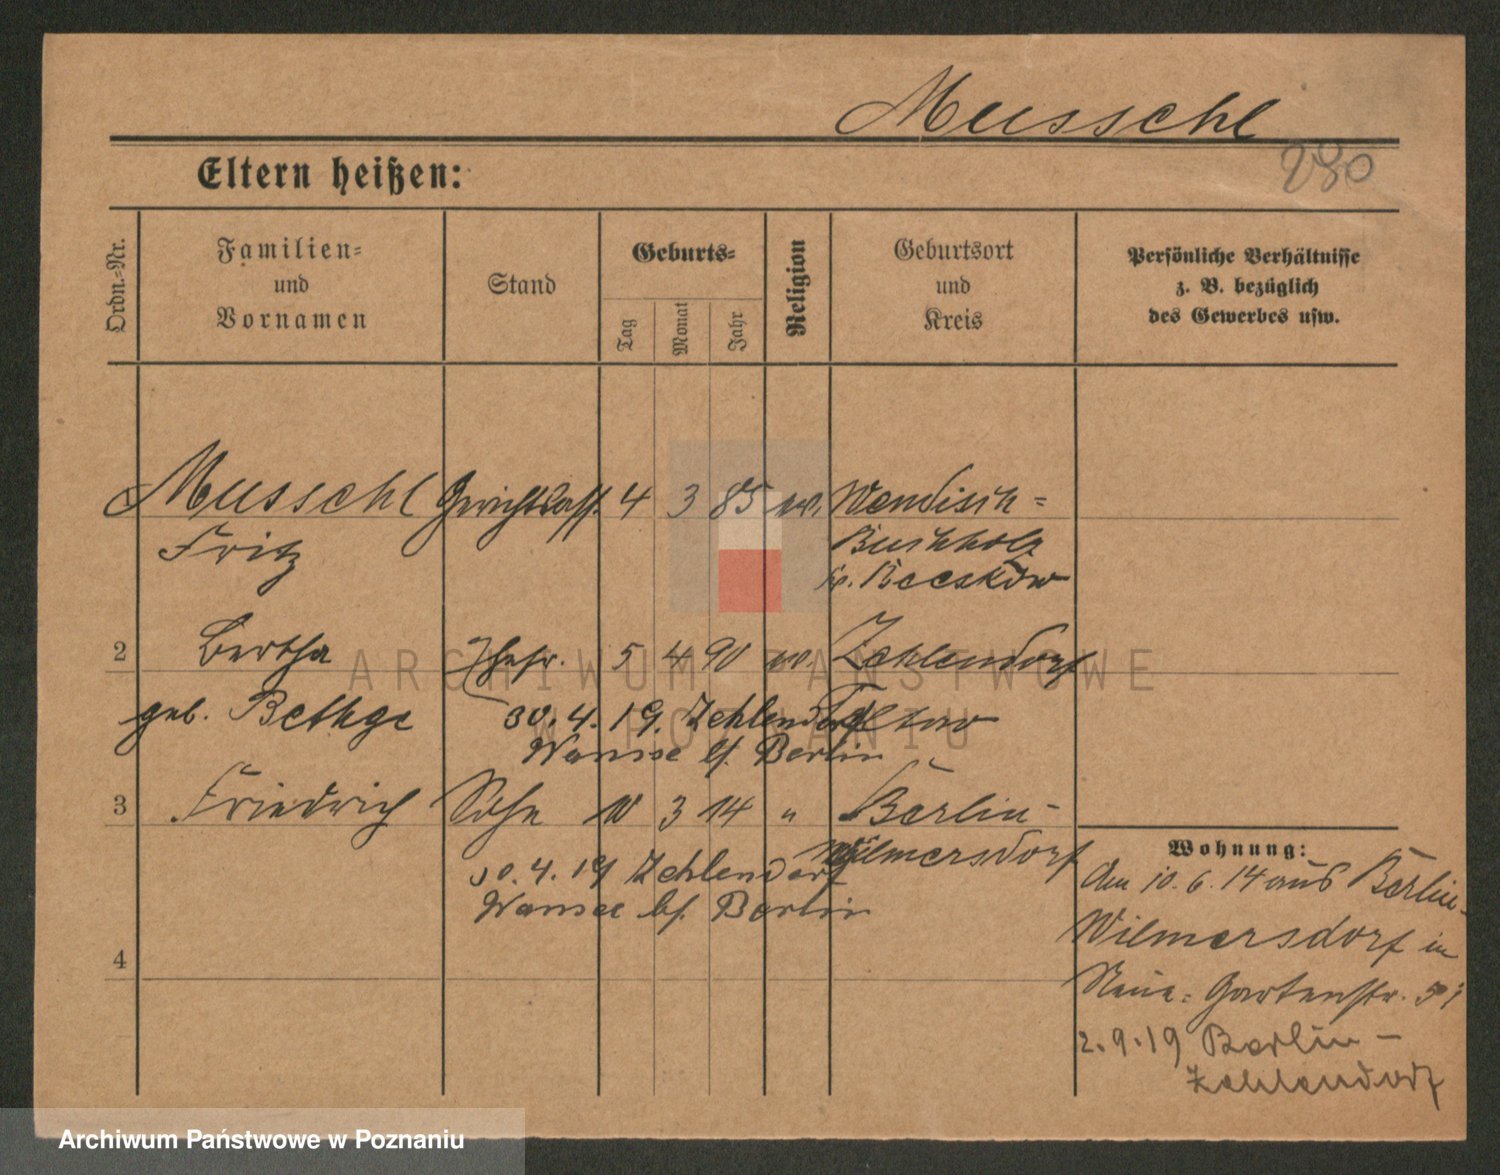 Musschl
280
Eltern heißen:
Ordn.-Nr.
Familien-
und
Vornamen
Stand
Geburts-
Tag
Monat
Jahr
Religion
Geburtsort
und
Kreis
Persönliche Verhältnisse
z. B. bezüglich
des Gewerbes usw.
Musschl Gerichtsass. 4 3 85 ev. Wendisch-
Fritz Buchholz
Kr. Beeskow
2 Bertha Ehefr. 5 4 90 ev. Zehlendorf
geb. Bethge 30.4.19. Zehlendorf Teltow
Wansee bf. Berlin
3 Friedrich Sohn 10 3 14 " Berlin-
Wilmersdorf
30.4.19 Zehlendorf
Wansee bf. Berlin
4
Wohnung:
Am 10.6.14 aus Berlin-
Wilmersdorf in
Neue-Gartenstr.
2.9.19 Berlin-
Zehlendorf
ARCHIWUM PAŃSTWOWE
W POZNANIU
Archiwum Państwowe w Poznaniu